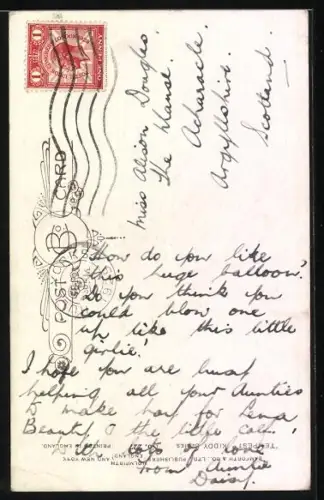 Miss Alison Douglas.
The Manse.
Acharacle.
Argyllshire.
Scotland.
POST CARD
How do you like
this huge balloon?
Do you think you
could blow one
up like this little
girlie!
I hope you are busy
helping all your Aunties
to make hay for
Beauty & the little calf!
With lots of love
from Auntie
Daisy.
BAMFORTH & CO. LTD., PUBLISHERS
HOLMFIRTH (ENGLAND) AND NEW YORK
"TEMPEST" KIDDY SERIES.
PRINTED IN ENGLAND.